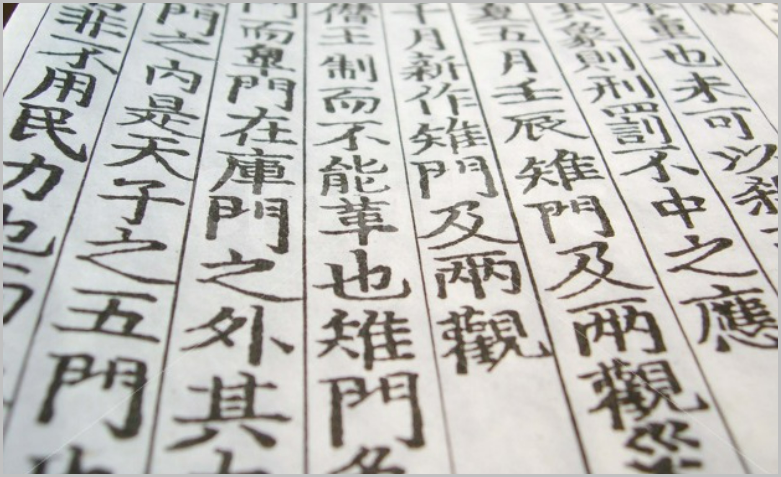 重也未可以殺
其象則刑罰不中之應
夏五月壬辰雉門及兩觀災
十月新作雉門及兩觀
僭王制而不能革也雉門
門而皐門在庫門之外其
門之内是天子之五門也
非不用民力也